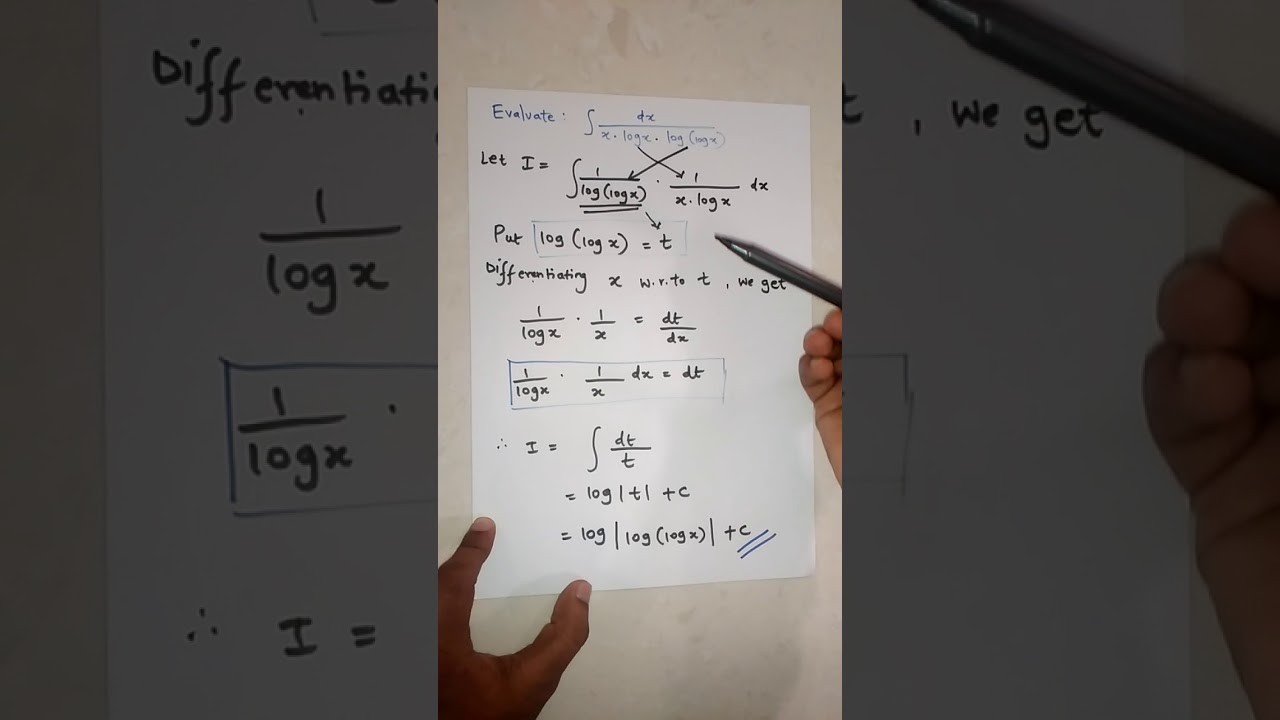 Evaluate : ∫ dx / x · logx · log(logx)
Let I = ∫ 1/log(logx) · 1/x·logx dx
Put log(logx) = t
Differentiating x w.r.to t , we get
1/logx · 1/x = dt/dx
1/logx · 1/x dx = dt
∴ I = ∫ dt/t
= log|t| + c
= log|log(logx)| + c